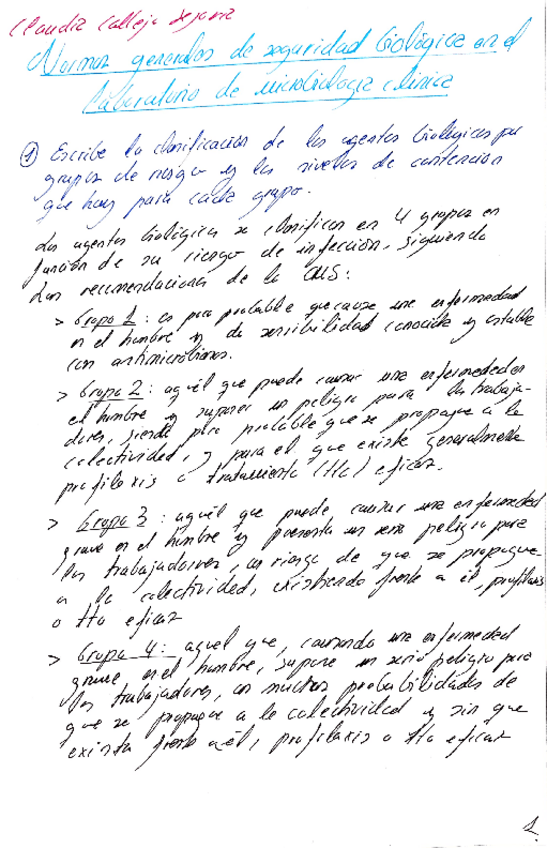 Claudia Calleja
Normas generales de seguridad biológica en el
Laboratorio de microbiología clínica
① Escribe la clasificación de los agentes biológicos por
grupos de riesgo y los niveles de contención
que hay para cada grupo.
Los agentes biológicos se clasifican en 4 grupos en
función de su riesgo de infección, siguiendo
las recomendaciones de la OMS:
> Grupo 1: es poco probable que cause una enfermedad
en el hombre y de sensibilidad conocida y estable
con antimicrobianos.
> Grupo 2: aquél que puede causar una enfermedad en
el hombre y suponer un peligro para los trabaja-
dores, siendo poco probable que se propague a la
colectividad, y para el que existe generalmente
profilaxis o tratamiento (tto) eficaz.
> Grupo 3: aquél que puede causar una enfermedad
grave en el hombre y presenta un serio peligro para
los trabajadores, con riesgo de que se propague
a la colectividad, existiendo frente a él, profilaxis
o tto eficaz
> Grupo 4: aquel que, causando una enfermedad
grave en el hombre, supone un serio peligro para
los trabajadores, con muchas probabilidades de
que se propague a la colectividad y sin que
exista frente a él, profilaxis o tto eficaz
1